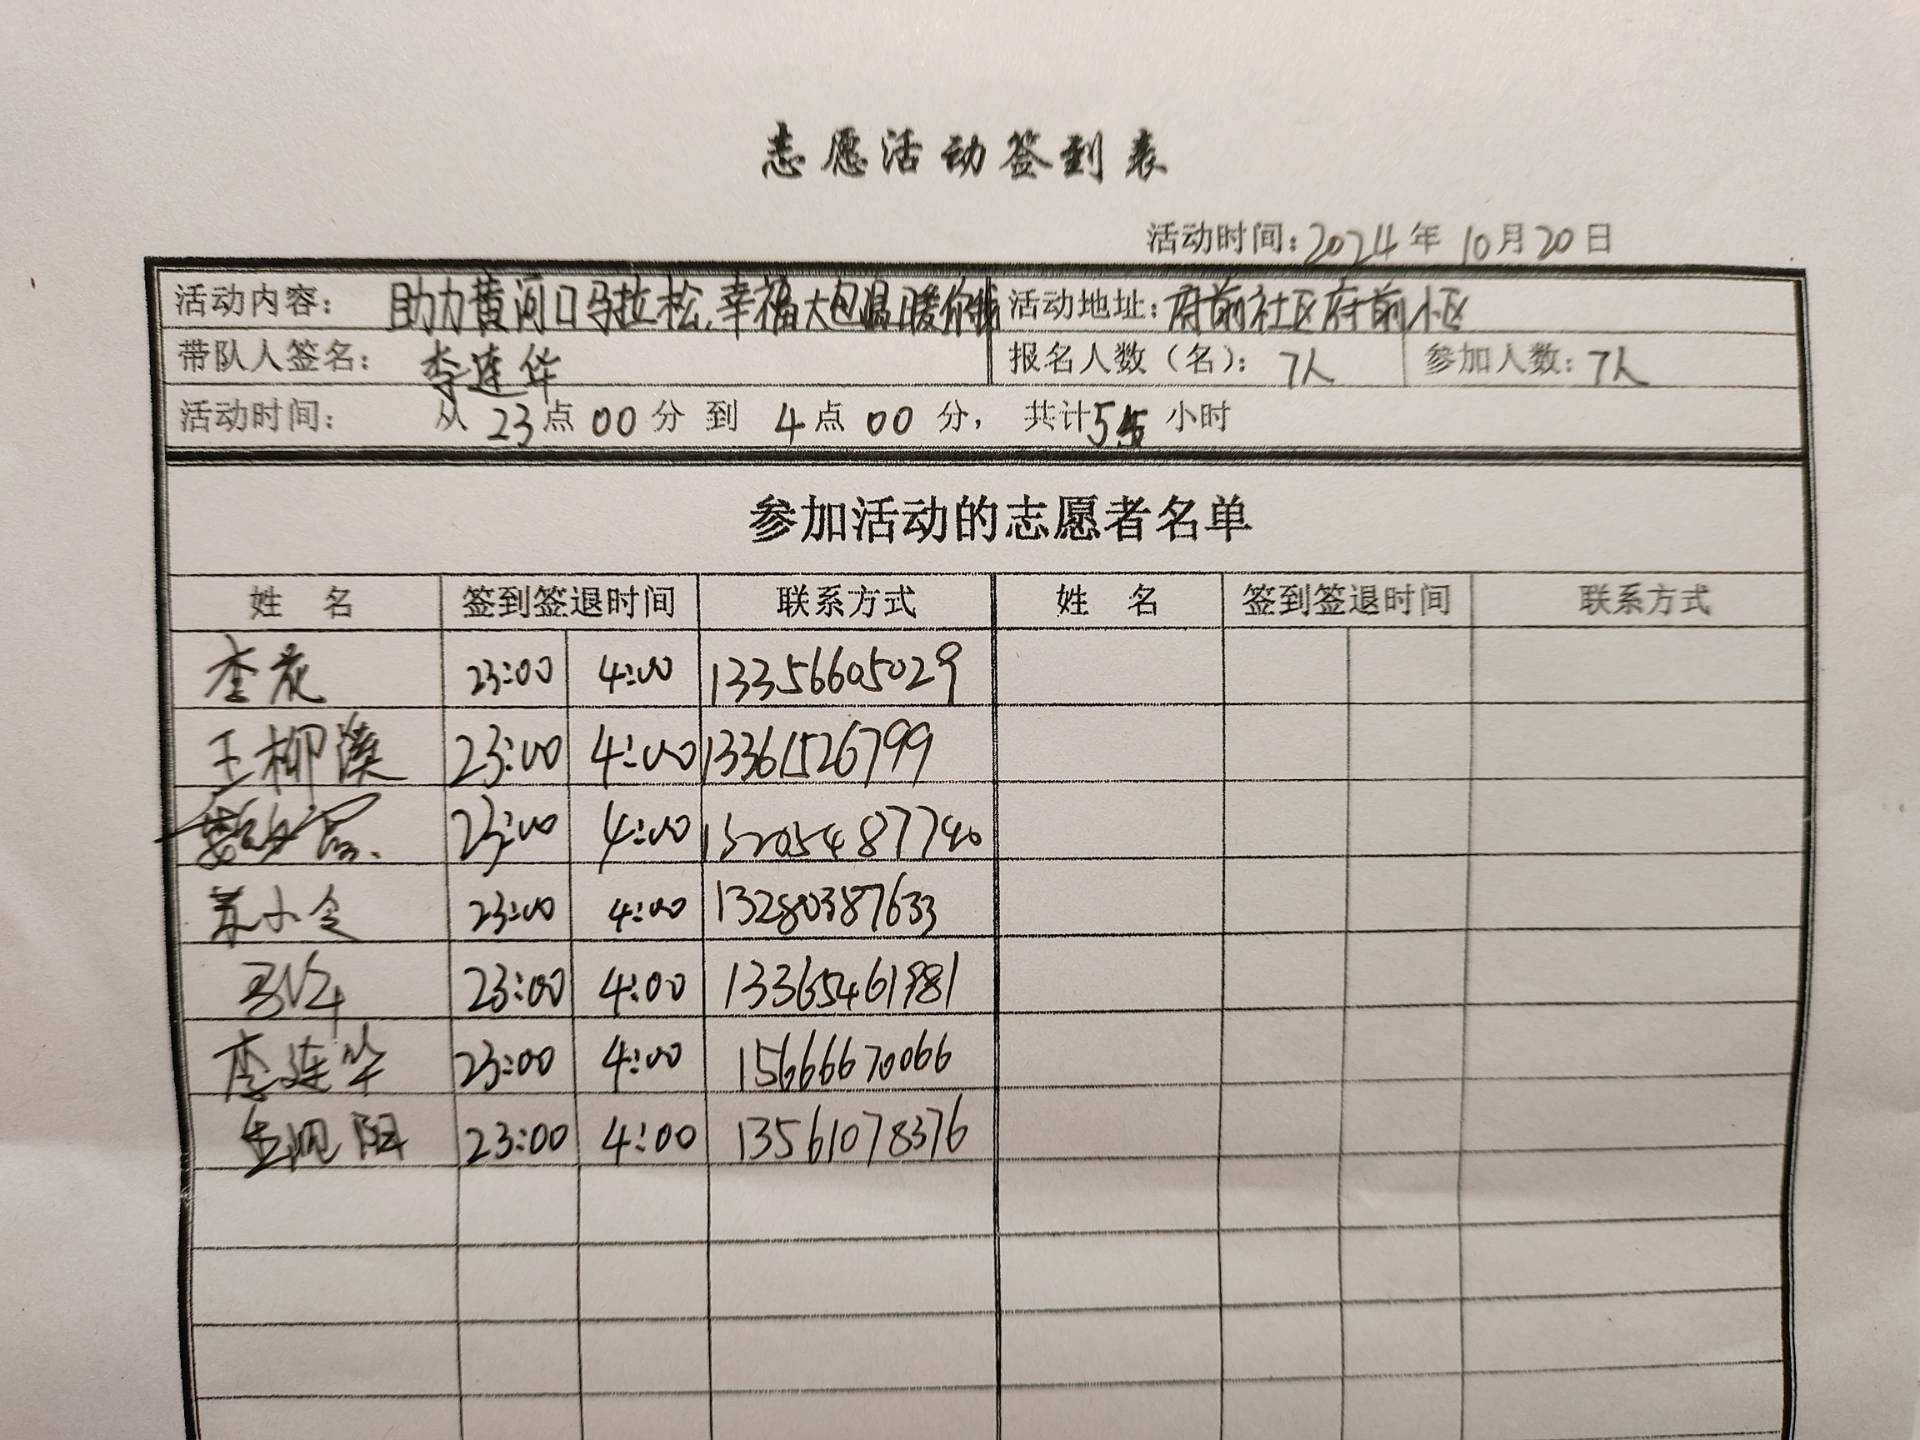 志愿活动签到表
活动时间：2024年10月20日
活动内容： 助力黄河口马拉松，幸福大包温暖你我 活动地址：府前社区府前小区
带队人签名： 李连华 报名人数（名）：7人 参加人数：7人
活动时间： 从23点00分到4点00分， 共计5小时
参加活动的志愿者名单
姓 名 签到签退时间 联系方式 姓 名 签到签退时间 联系方式
李花 23:00 4:00 13356605029
王柳溪 23:00 4:00 13361526799
23:00 4:00 15205487740
苏小令 23:00 4:00 13280387633
23:00 4:00 13365461981
李连华 23:00 4:00 15666670066
23:00 4:00 13561078376